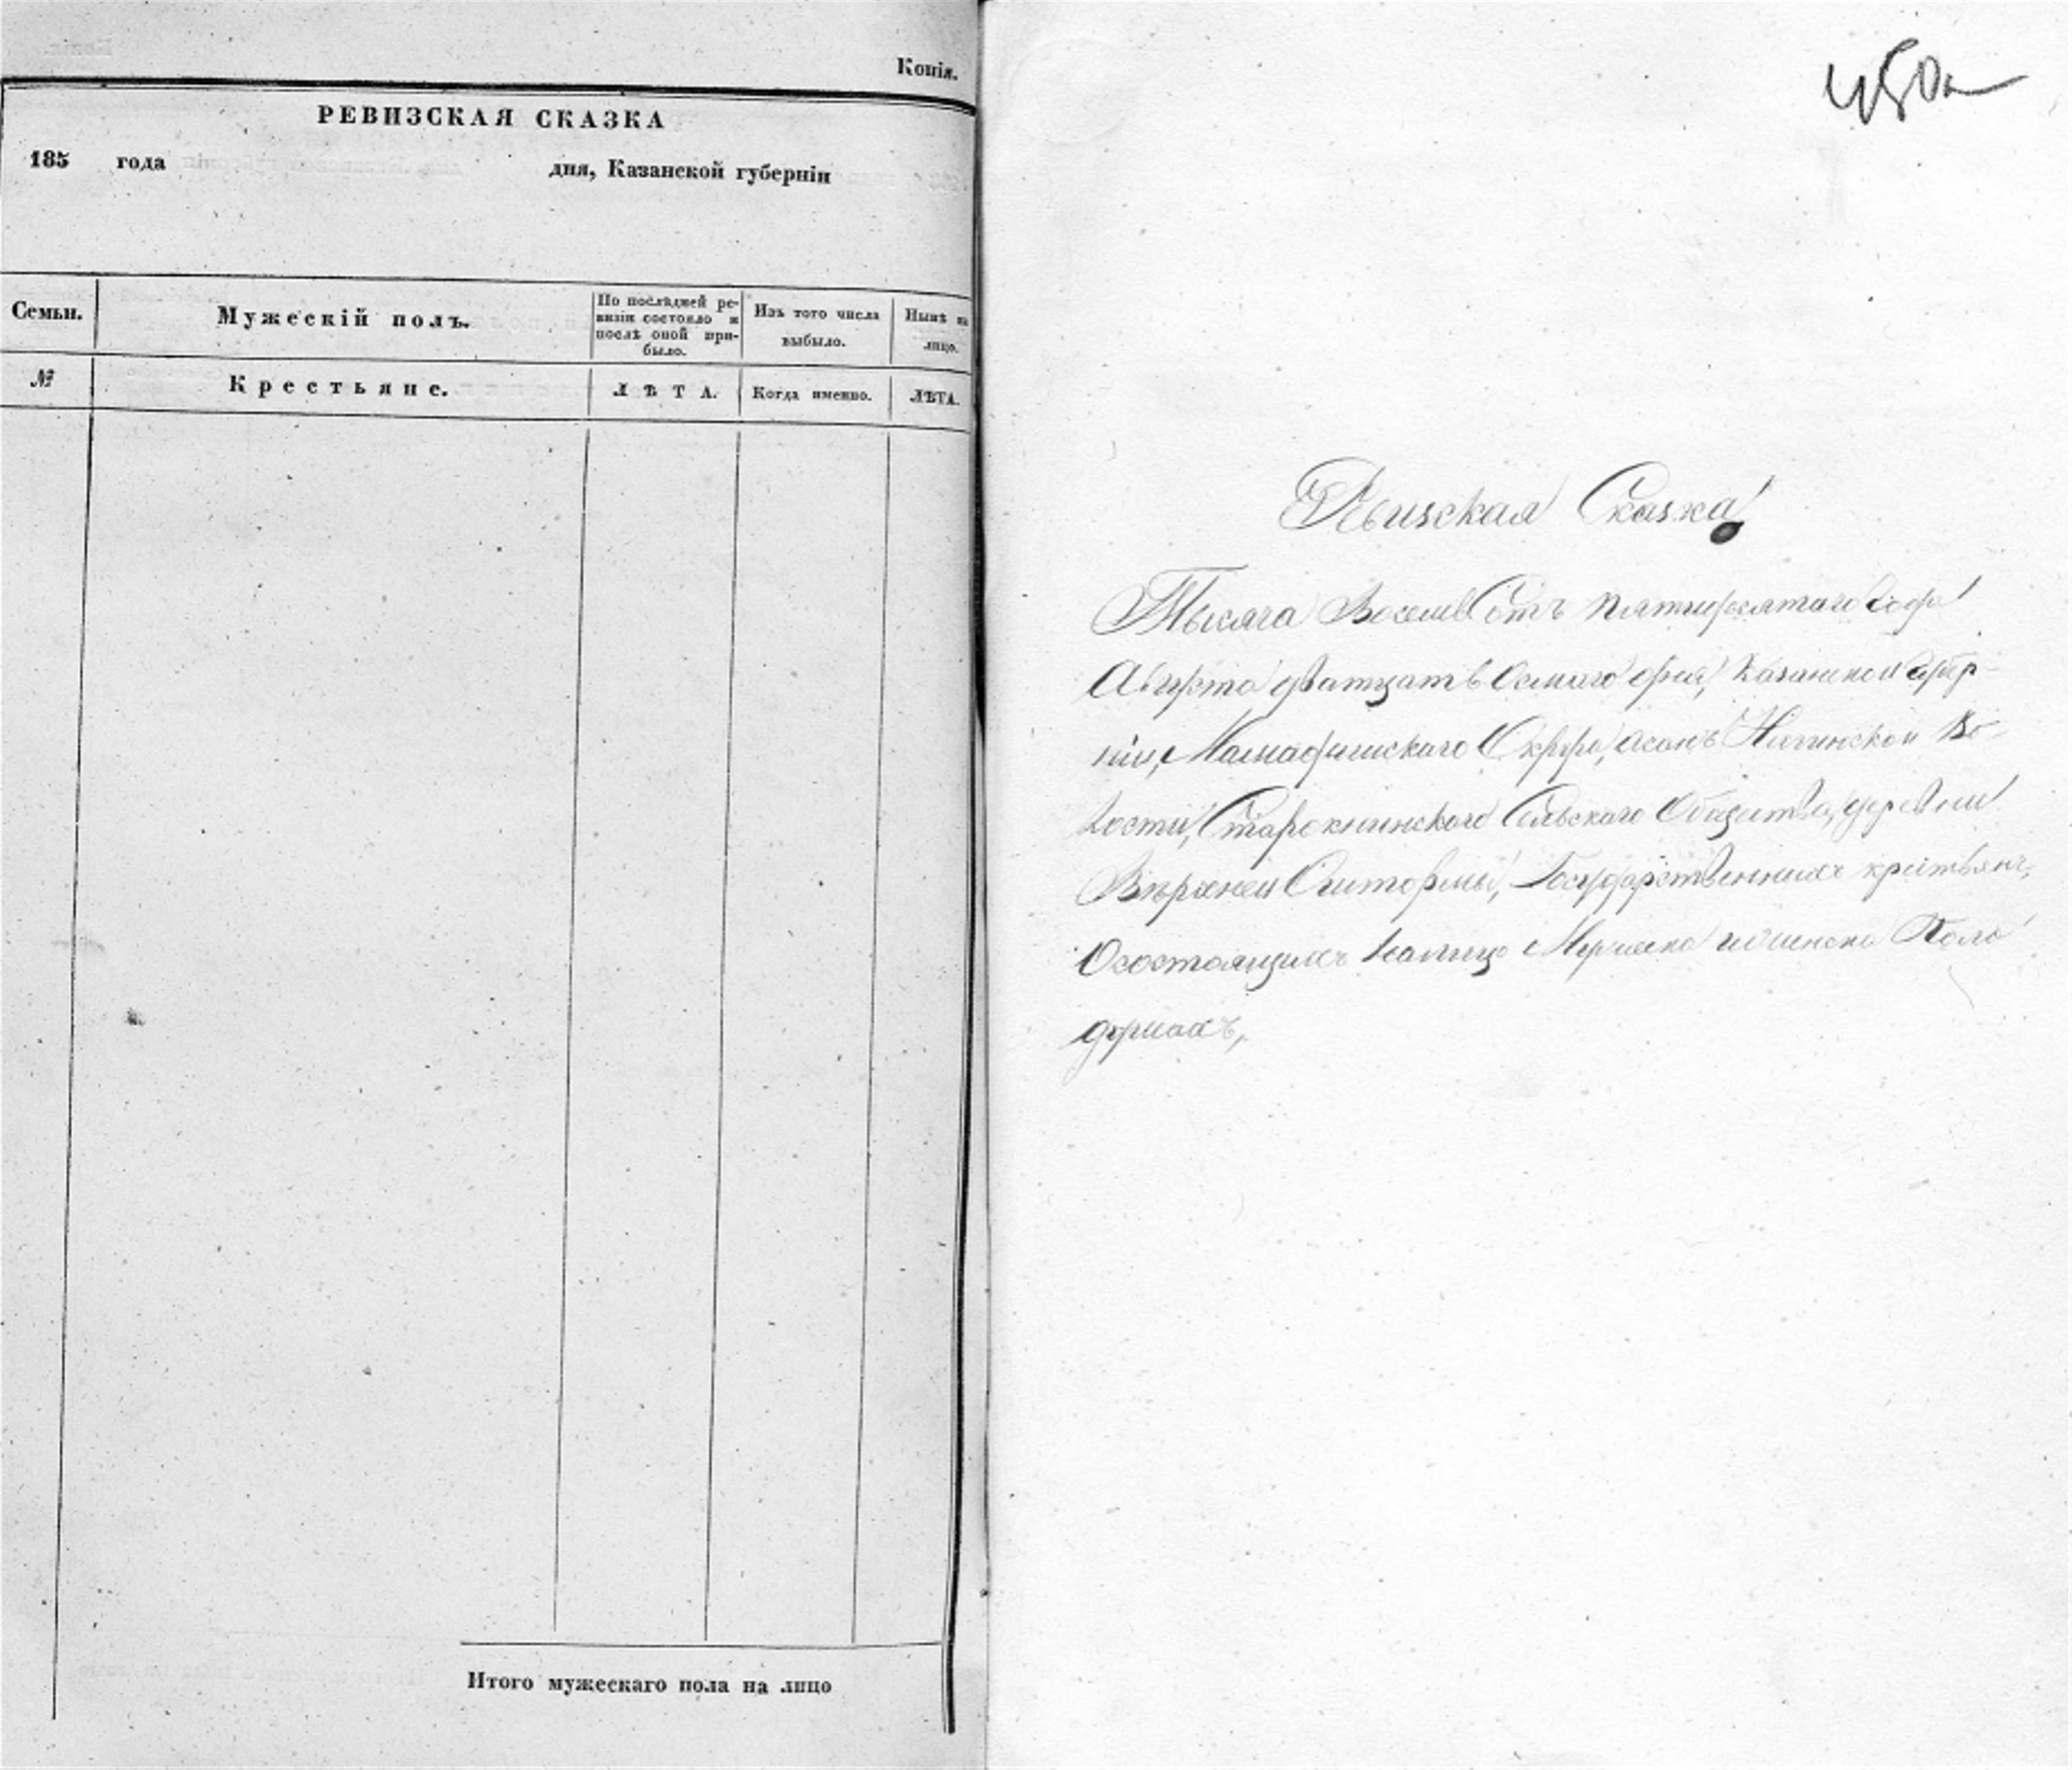 Копія.
РЕВИЗСКАЯ СКАЗКА
185 года дня, Казанской губерніи
Семьи.
Мужескій полъ.
По послѣдней ре-
визіи состояло и
послѣ оной при-
было.
Изъ того числа
выбыло.
Нынѣ на
лицо.
№
Крестьяне.
ЛѢТА.
Когда именно.
ЛѢТА.
Итого мужескаго пола на лицо
Ревизская Сказка
Тысяча Восемь Сотъ пятидесятаго года
Августа дватцать Осмаго дня, Казанской Губер-
ніи, Мамадышскаго Округа, Нагинской Во-
лости, Старокнинскаго Сельскаго Общества, деревни
Верхней Оштормы, Государственныхъ крестьянъ,
О состоящихъ налицо Мужеска и женска Пола
душахъ,